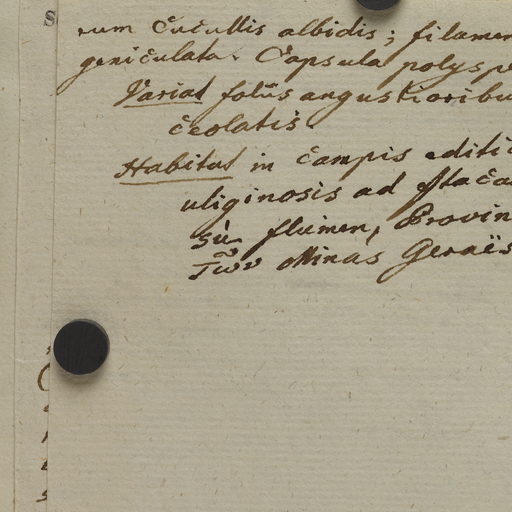 rum cucullis albidis; filamen
geniculata. Capsula polysp
Variat foliis angustioribu
ceolatis.
Habitat in campis editi
uliginosis ad
flumen, Provin
Minas Geraës